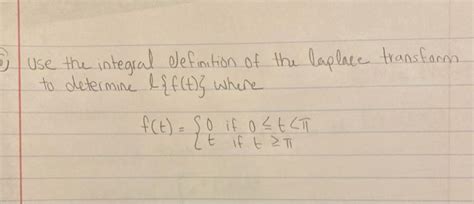 5) Use the integral definition of the laplace transform
to determine L{f(t)} where
f(t) = {0 if 0 ≤ t < π
{t if t ≥ π